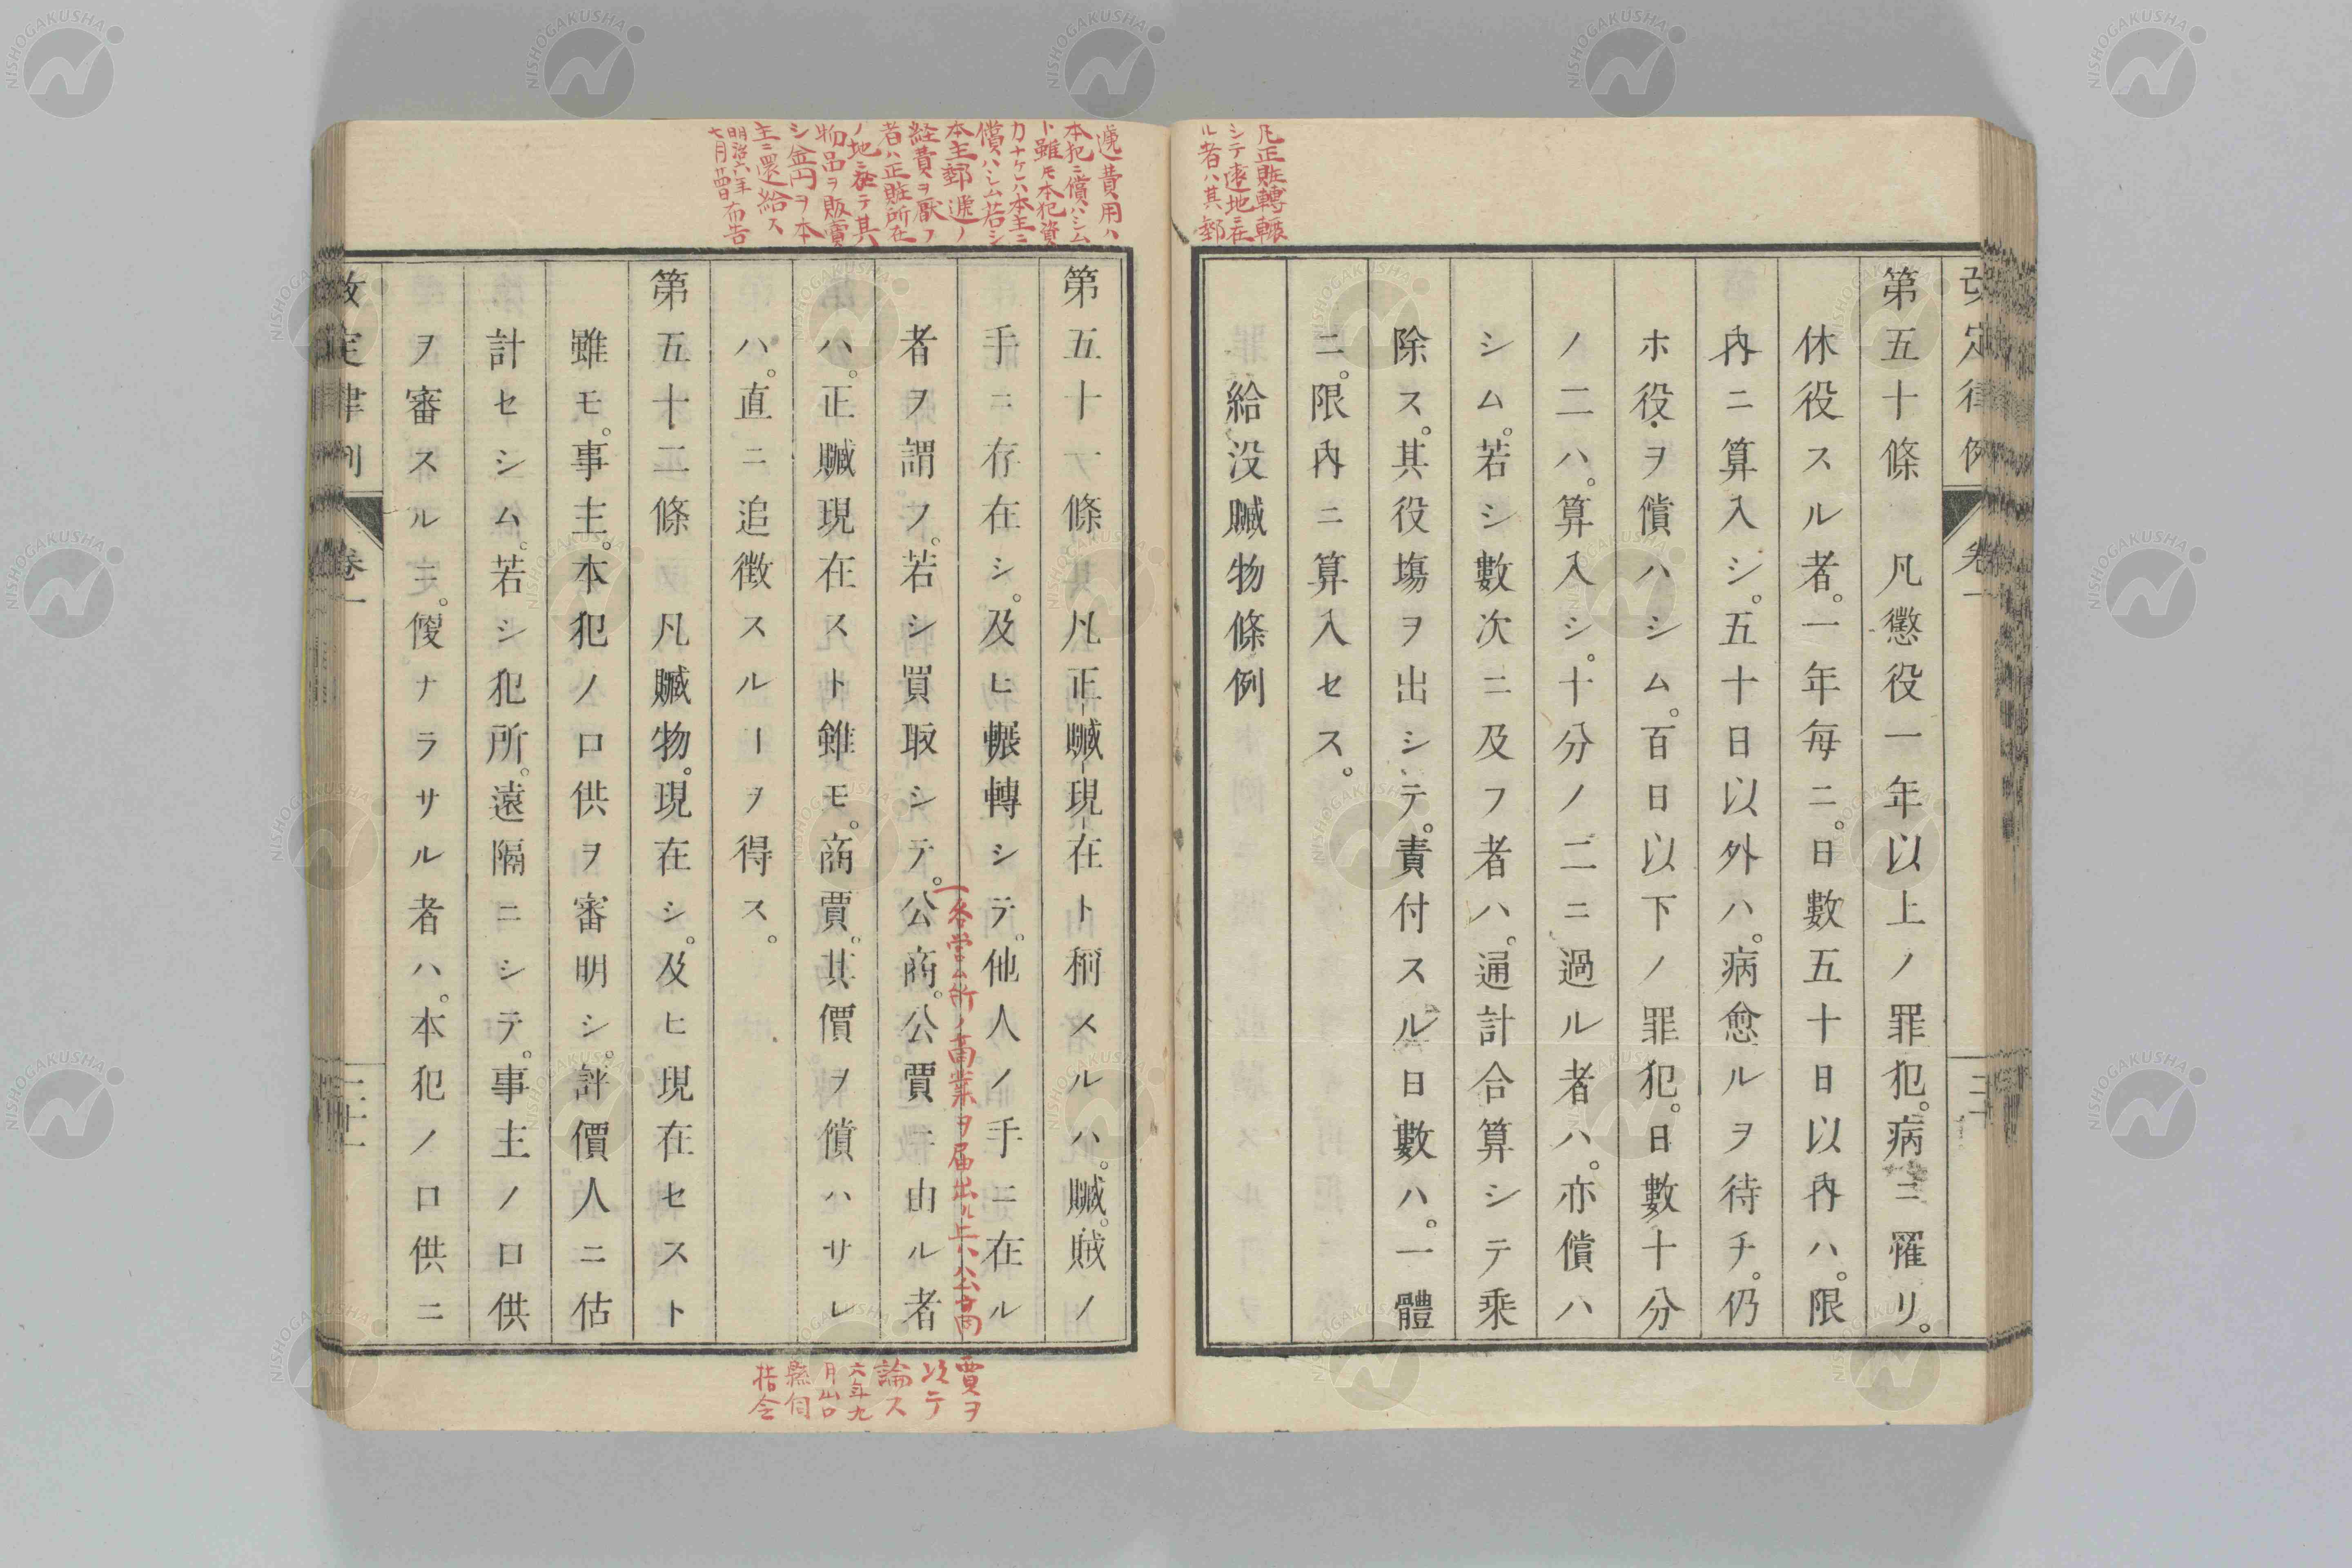 凡正賍轉輾
シテ遠地ニ在
ル者ハ其郵
改定律例
卷一
三十
第五十條 凡懲役一年以上ノ罪犯。病ニ罹リ。
休役スル者。一年每ニ。日數五十日以內ハ。限
內ニ算入シ。五十日以外ハ。病愈ルヲ待チ。仍
ホ役ヲ償ハシム。百日以下ノ罪犯。日數十分
ノ二ハ。算入シ。十分ノ二ニ過ル者ハ。亦償ハ
シム。若シ數次ニ及フ者ハ。通計合算シテ乘
除ス。其役塲ヲ出シテ。責付スル日數ハ。一體
ニ。限內ニ算入セス。
給没贓物條例
遞費用ハ
本犯ニ償ハシム
ト雖モ本犯資
力ナケレハ本主ニ
償ハシム若シ
本主郵遞ノ
経費ヲ厭フ
者ハ正賍所在
ノ地ニ於テ其
物品ヲ販賣
シ金円ヲ本
主ニ還給ス
明治六年
七月廿四日布告
第五十一條 凡正贓現在ト稱スルハ。贓。賊ノ
手ニ存在シ。及ヒ輾轉シテ。他人ノ手ニ在ル
者ヲ謂フ。若シ買取シテ。公商。公賈ニ由ル者
ハ。正贓現在スト雖モ。商賈。其價ヲ償ハサレ
ハ。直ニ追徴スルーヲ得ス。
第五十二條 凡贓物。現在シ。及ヒ現在セスト
雖モ。事主。本犯ノ口供ヲ審明シ。評價人ニ估
計セシム。若シ犯所。遠隔ニシテ。事主ノ口供
ヲ審スルニ。便ナラサル者ハ。本犯ノ口供ニ
改定律例
卷一
三十一
各営ム所ノ商業ヲ届出ル上ハ公商
賈ヲ
以テ
論ス
六年九
月山口
縣伺
指令
NISHOGAKUSHA